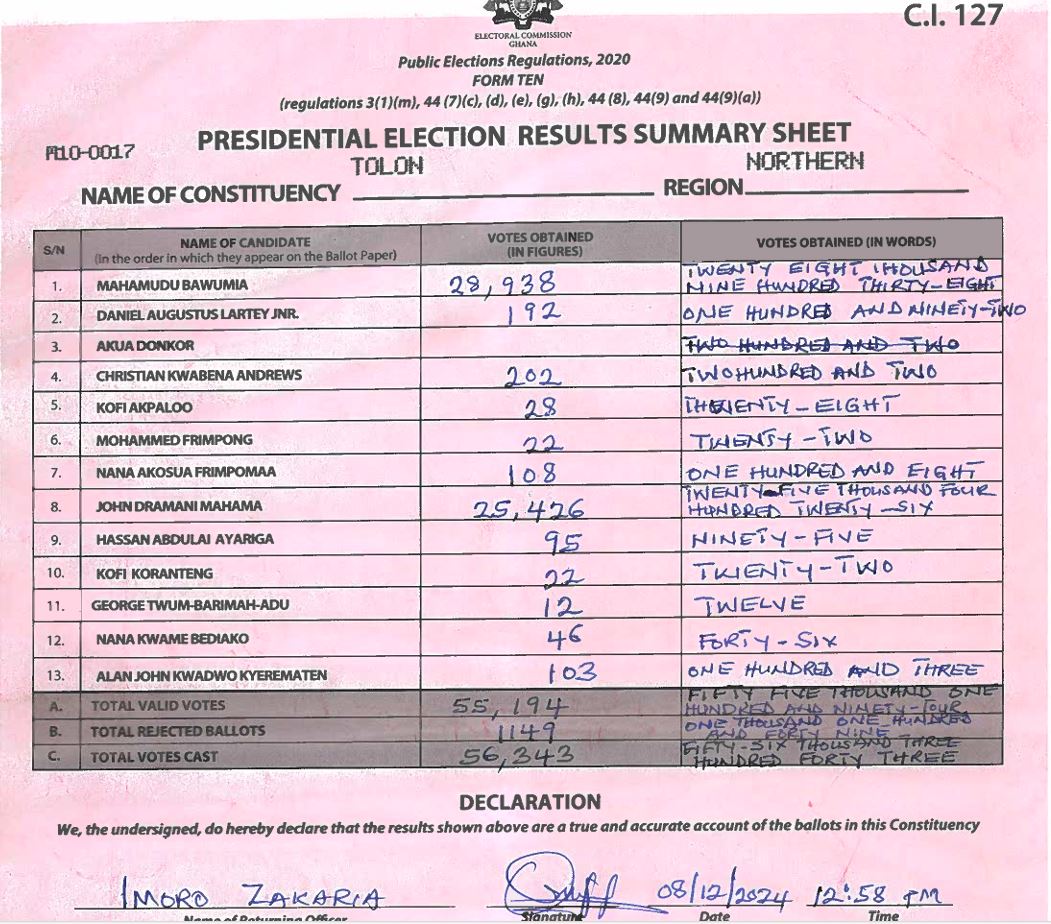 C.I. 127
ELECTORAL COMMISSION
GHANA
Public Elections Regulations, 2020
FORM TEN
(regulations 3(1)(m), 44 (7)(c), (d), (e), (g), (h), 44 (8), 44(9) and 44(9)(a))
PRESIDENTIAL ELECTION RESULTS SUMMARY SHEET
M10-0017
TOLON NORTHERN
NAME OF CONSTITUENCY REGION
S/N NAME OF CANDIDATE (In the order in which they appear on the Ballot Paper) VOTES OBTAINED (IN FIGURES) VOTES OBTAINED (IN WORDS)
1. MAHAMUDU BAWUMIA 28,938 TWENTY EIGHT THOUSAND NINE HUNDRED THIRTY-EIGHT
2. DANIEL AUGUSTUS LARTEY JNR. 192 ONE HUNDRED AND NINETY-TWO
3. AKUA DONKOR TWO HUNDRED AND TWO
4. CHRISTIAN KWABENA ANDREWS 202 TWO HUNDRED AND TWO
5. KOFI AKPALOO 28 TWENTY-EIGHT
6. MOHAMMED FRIMPONG 22 TWENTY-TWO
7. NANA AKOSUA FRIMPOMAA 108 ONE HUNDRED AND EIGHT
8. JOHN DRAMANI MAHAMA 25,426 TWENTY-FIVE THOUSAND FOUR HUNDRED TWENTY-SIX
9. HASSAN ABDULAI AYARIGA 95 NINETY-FIVE
10. KOFI KORANTENG 22 TWENTY-TWO
11. GEORGE TWUM-BARIMAH-ADU 12 TWELVE
12. NANA KWAME BEDIAKO 46 FORTY-SIX
13. ALAN JOHN KWADWO KYEREMATEN 103 ONE HUNDRED AND THREE
A. TOTAL VALID VOTES 55,194 FIFTY FIVE THOUSAND ONE HUNDRED AND NINETY-FOUR
B. TOTAL REJECTED BALLOTS 1149 ONE THOUSAND ONE HUNDRED AND FORTY NINE
C. TOTAL VOTES CAST 56,343 FIFTY-SIX THOUSAND THREE HUNDRED FORTY THREE
DECLARATION
We, the undersigned, do hereby declare that the results shown above are a true and accurate account of the ballots in this Constituency
IMORO ZAKARIA 08/12/2024 12:58 PM
Name of Returning Officer Signature Date Time